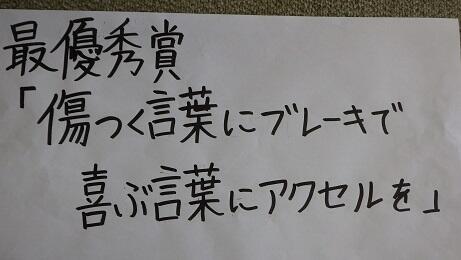 最優秀賞
「傷つく言葉にブレーキで
喜ぶ言葉にアクセルを」